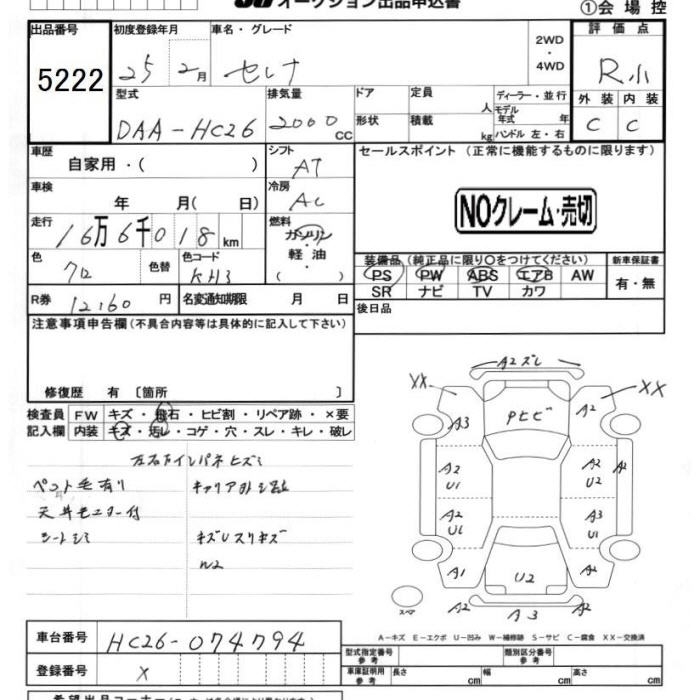 オークション出品申込書 ①会場控
出品番号 初度登録年月 車名・グレード 2WD・4WD 評価点
5222 25 2月 セレナ R小
型式 排気量 ドア 定員 人 ディーラー・並行 外装 内装
DAA-HC26 2000CC 形状 積載 kg モデル年式 年 ハンドル 左・右 C C
車歴 自家用・( ) シフト AT セールスポイント (正常に機能するものに限ります)
車検 年 月( 日) 冷房 AC
NOクレーム・売切
走行 16万6千018km 燃料 ガソリン・軽油 ( )
装備品(純正品に限り○をつけてください) 新車保証書
色 クロ 色替 色コード KH3 PS PW ABS エアB AW 有・無
SR ナビ TV カワ
R券 12,160円 名変通知期限 月 日 後日品
注意事項申告欄(不具合内容等は具体的に記入して下さい)
修復歴 有 〔箇所 〕
検査員 FW キズ・飛石・ヒビ割・リペア跡・×要
記入欄 内装 キズ・汚レ・コゲ・穴・スレ・キレ・破レ
ペット毛有り
天井モニター付
シートシミ
キズUスリキズ
W2
A2ズレ
XX XX
A3 Pヒビ A2
A2 U1 A2 U2 A2
A2 A3 U1
A1 U2 A2
A2 A3 A2
スペア
A-キズ E-エクボ U-凹み W-補修跡 S-サビ C-腐食 XX-交換済
車台番号 HC26-074794
型式指定番号 参考 類別区分番号 参考
登録番号 X 車庫証明用 参考 長さ cm 幅 cm 高さ cm